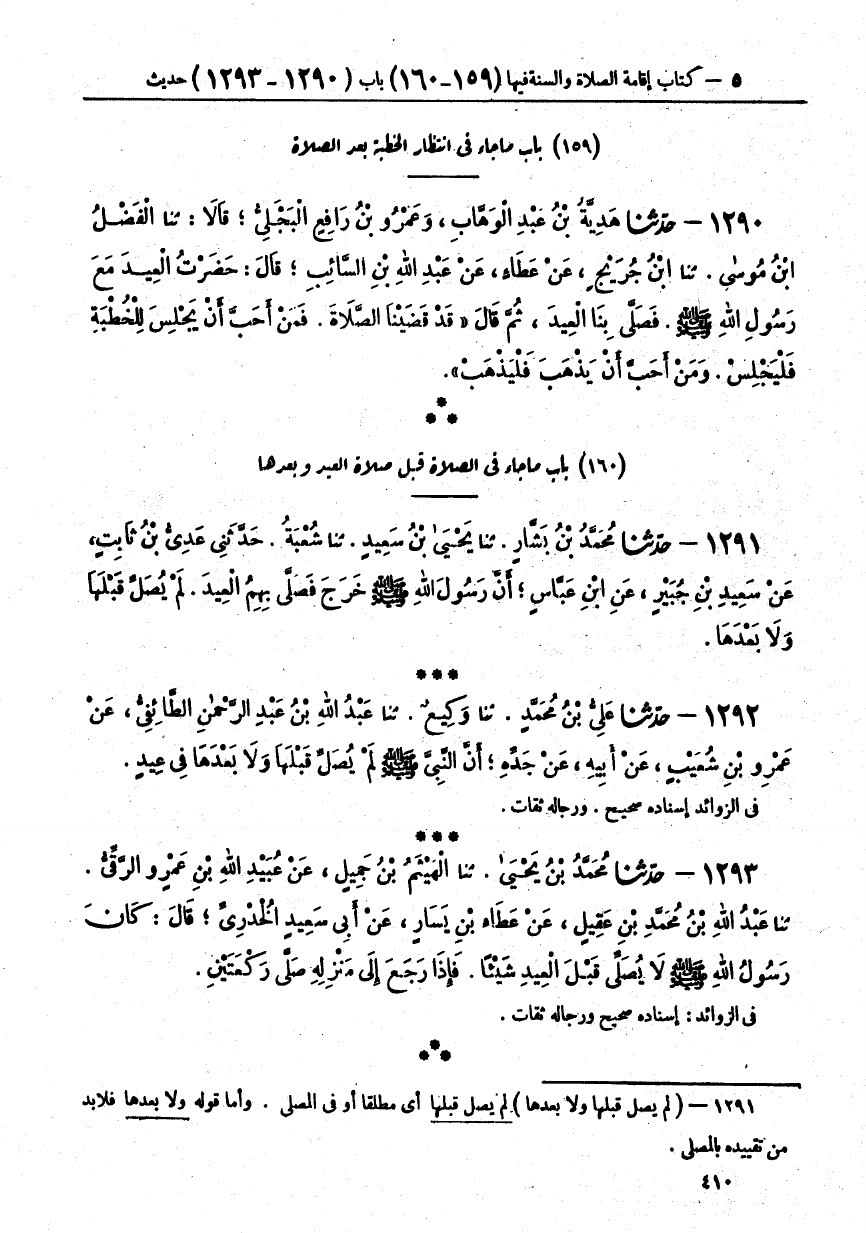 ٥ – كتاب إقامة الصلاة والسنة فيها (١٥٩ – ١٦٠) باب (١٢٩٠ – ١٢٩٣) حديث
(١٥٩) باب ماجاء فى انتظار الخطبة بعد الصلاة
١٢٩٠ – حَدَّثَنَا هَدِيَّةُ بْنُ عَبْدِ الْوَهَّابِ، وَعَمْرُو بْنُ رَافِعٍ الْبَجَلِىُّ؛ قَالَا: ثنا الْفَضْلُ
ابْنُ مُوسَى. ثنا ابْنُ جُرَيْجٍ، عَنْ عَطَاءٍ، عَنْ عَبْدِ اللهِ بْنِ السَّائِبِ؛ قَالَ: حَضَرْتُ الْعِيدَ مَعَ
رَسُولِ اللهِ ﷺ. فَصَلَّى بِنَا الْعِيدَ، ثُمَّ قَالَ «قَدْ قَضَيْنَا الصَّلَاةَ. فَمَنْ أَحَبَّ أَنْ يَجْلِسَ لِلْخُطْبَةِ
فَلْيَجْلِسْ. وَمَنْ أَحَبَّ أَنْ يَذْهَبَ فَلْيَذْهَبْ».
*
* *
(١٦٠) باب ماجاء فى الصلاة قبل صلاة العيد وبعدها
١٢٩١ – حَدَّثَنَا مُحَمَّدُ بْنُ بَشَّارٍ. ثنا يَحْيَىٰ بْنُ سَعِيدٍ. ثنا شُعْبَةُ. حَدَّثَنِى عَدِىُّ بْنُ ثَابِتٍ،
عَنْ سَعِيدِ بْنِ جُبَيْرٍ، عَنِ ابْنِ عَبَّاسٍ؛ أَنَّ رَسُولَ اللهِ ﷺ خَرَجَ فَصَلَّى بِهِمُ الْعِيدَ. لَمْ يُصَلِّ قَبْلَهَا
وَلَا بَعْدَهَا.
* * *
١٢٩٢ – حَدَّثَنَا عَلِىُّ بْنُ مُحَمَّدٍ. ثنا وَكِيعٌ. ثنا عَبْدُ اللهِ بْنُ عَبْدِ الرَّحْمٰنِ الطَّائِفِىُّ، عَنْ
عَمْرِو بْنِ شُعَيْبٍ، عَنْ أَبِيهِ، عَنْ جَدِّهِ؛ أَنَّ النَّبِىَّ ﷺ لَمْ يُصَلِّ قَبْلَهَا وَلَا بَعْدَهَا فِى عِيدٍ.
فى الزوائد إسناده صحيح. ورجاله ثقات.
* * *
١٢٩٣ – حَدَّثَنَا مُحَمَّدُ بْنُ يَحْيَىٰ. ثنا الْهَيْثَمُ بْنُ جَمِيلٍ، عَنْ عُبَيْدِ اللهِ بْنِ عَمْرٍو الرَّقِّىِّ.
ثنا عَبْدُ اللهِ بْنُ مُحَمَّدِ بْنِ عَقِيلٍ، عَنْ عَطَاءِ بْنِ يَسَارٍ، عَنْ أَبِى سَعِيدٍ الْخُدْرِىِّ؛ قَالَ: كَانَ
رَسُولُ اللهِ ﷺ لَا يُصَلِّى قَبْلَ الْعِيدِ شَيْئًا. فَإِذَا رَجَعَ إِلَى مَنْزِلِهِ صَلَّى رَكْعَتَيْنِ.
فى الزوائد: إسناده صحيح ورجاله ثقات.
*
* *
١٢٩١ – (لم يصل قبلها ولا بعدها) لم يصل قبلها أى مطلقا أو فى المصلى. وأما قوله ولا بعدها فلابد
من تقييده بالمصلى.
٤١٠